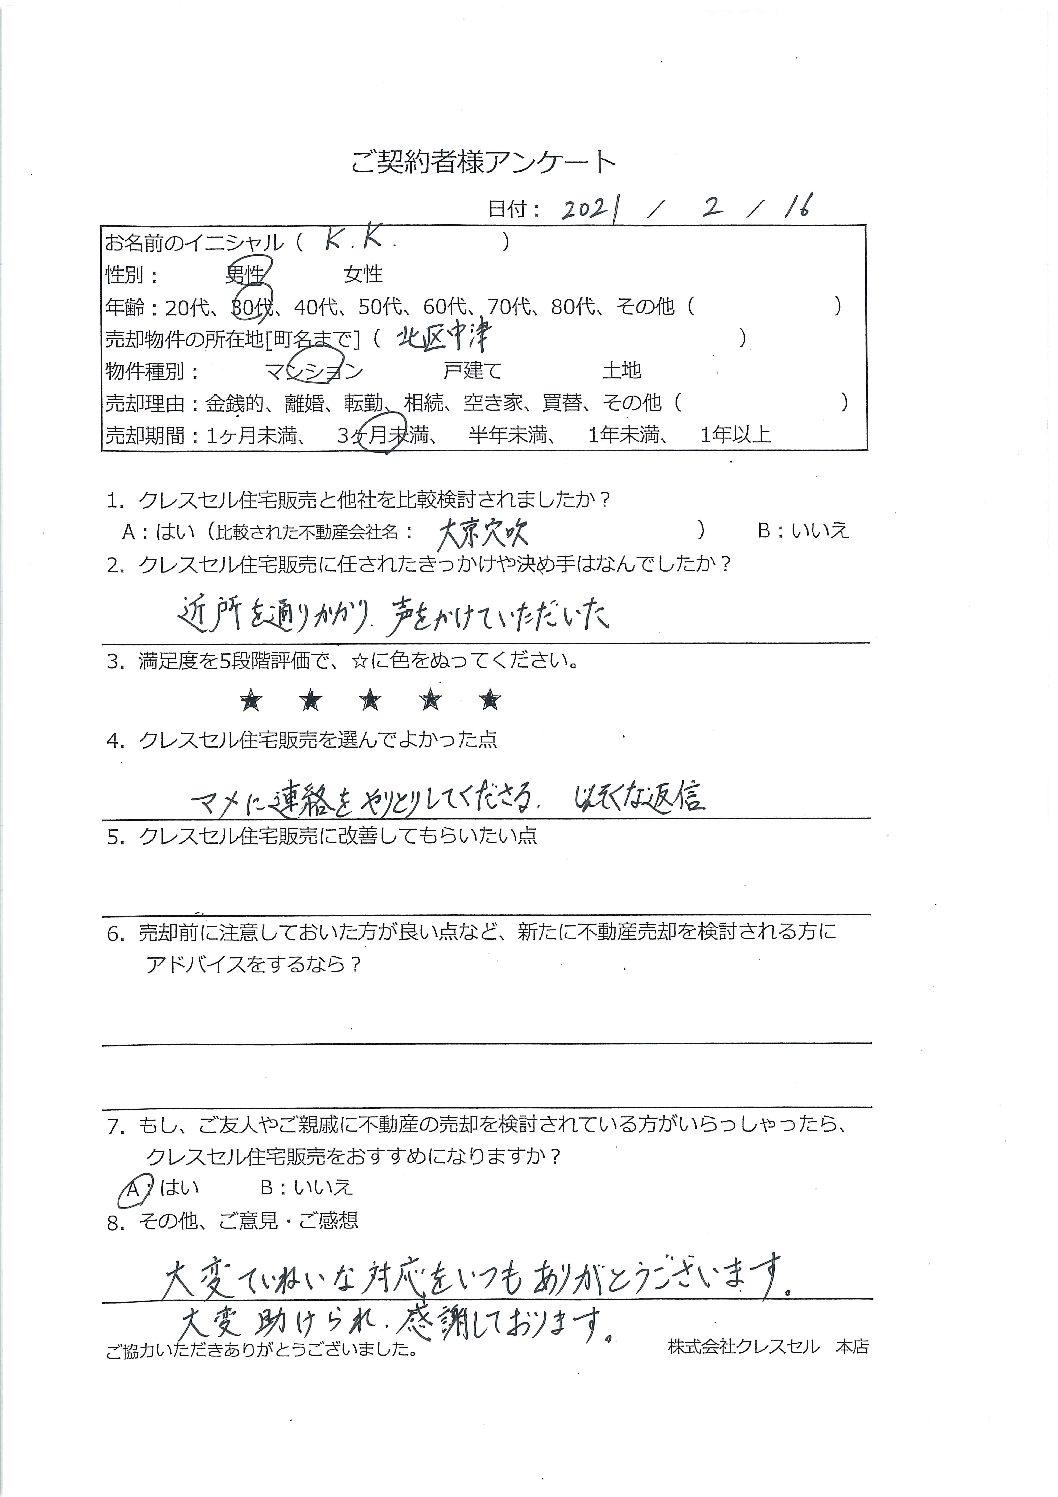 ご契約者様アンケート
日付： 2021 / 2 / 16
お名前のイニシャル（ K.K. ）
性別： 男性 女性
年齢：20代、30代、40代、50代、60代、70代、80代、その他（ ）
売却物件の所在地[町名まで]（ 北区中津 ）
物件種別： マンション 戸建て 土地
売却理由：金銭的、離婚、転勤、相続、空き家、買替、その他（ ）
売却期間：1ヶ月未満、 3ヶ月未満、 半年未満、 1年未満、 1年以上
1．クレスセル住宅販売と他社を比較検討されましたか？
A：はい（比較された不動産会社名： 大京穴吹 ） B：いいえ
2．クレスセル住宅販売に任されたきっかけや決め手はなんでしたか？
近所を通りかかり、声をかけていただいた
3．満足度を5段階評価で、☆に色をぬってください。
★ ★ ★ ★ ★
4．クレスセル住宅販売を選んでよかった点
マメに連絡をやりとりしてくださる。 な返信
5．クレスセル住宅販売に改善してもらいたい点
6．売却前に注意しておいた方が良い点など、新たに不動産売却を検討される方に
アドバイスをするなら？
7．もし、ご友人やご親戚に不動産の売却を検討されている方がいらっしゃったら、
クレスセル住宅販売をおすすめになりますか？
A：はい B：いいえ
8．その他、ご意見・ご感想
大変ていねいな対応をいつもありがとうございます。
大変助けられ、感謝しております。
ご協力いただきありがとうございました。 株式会社クレスセル 本店